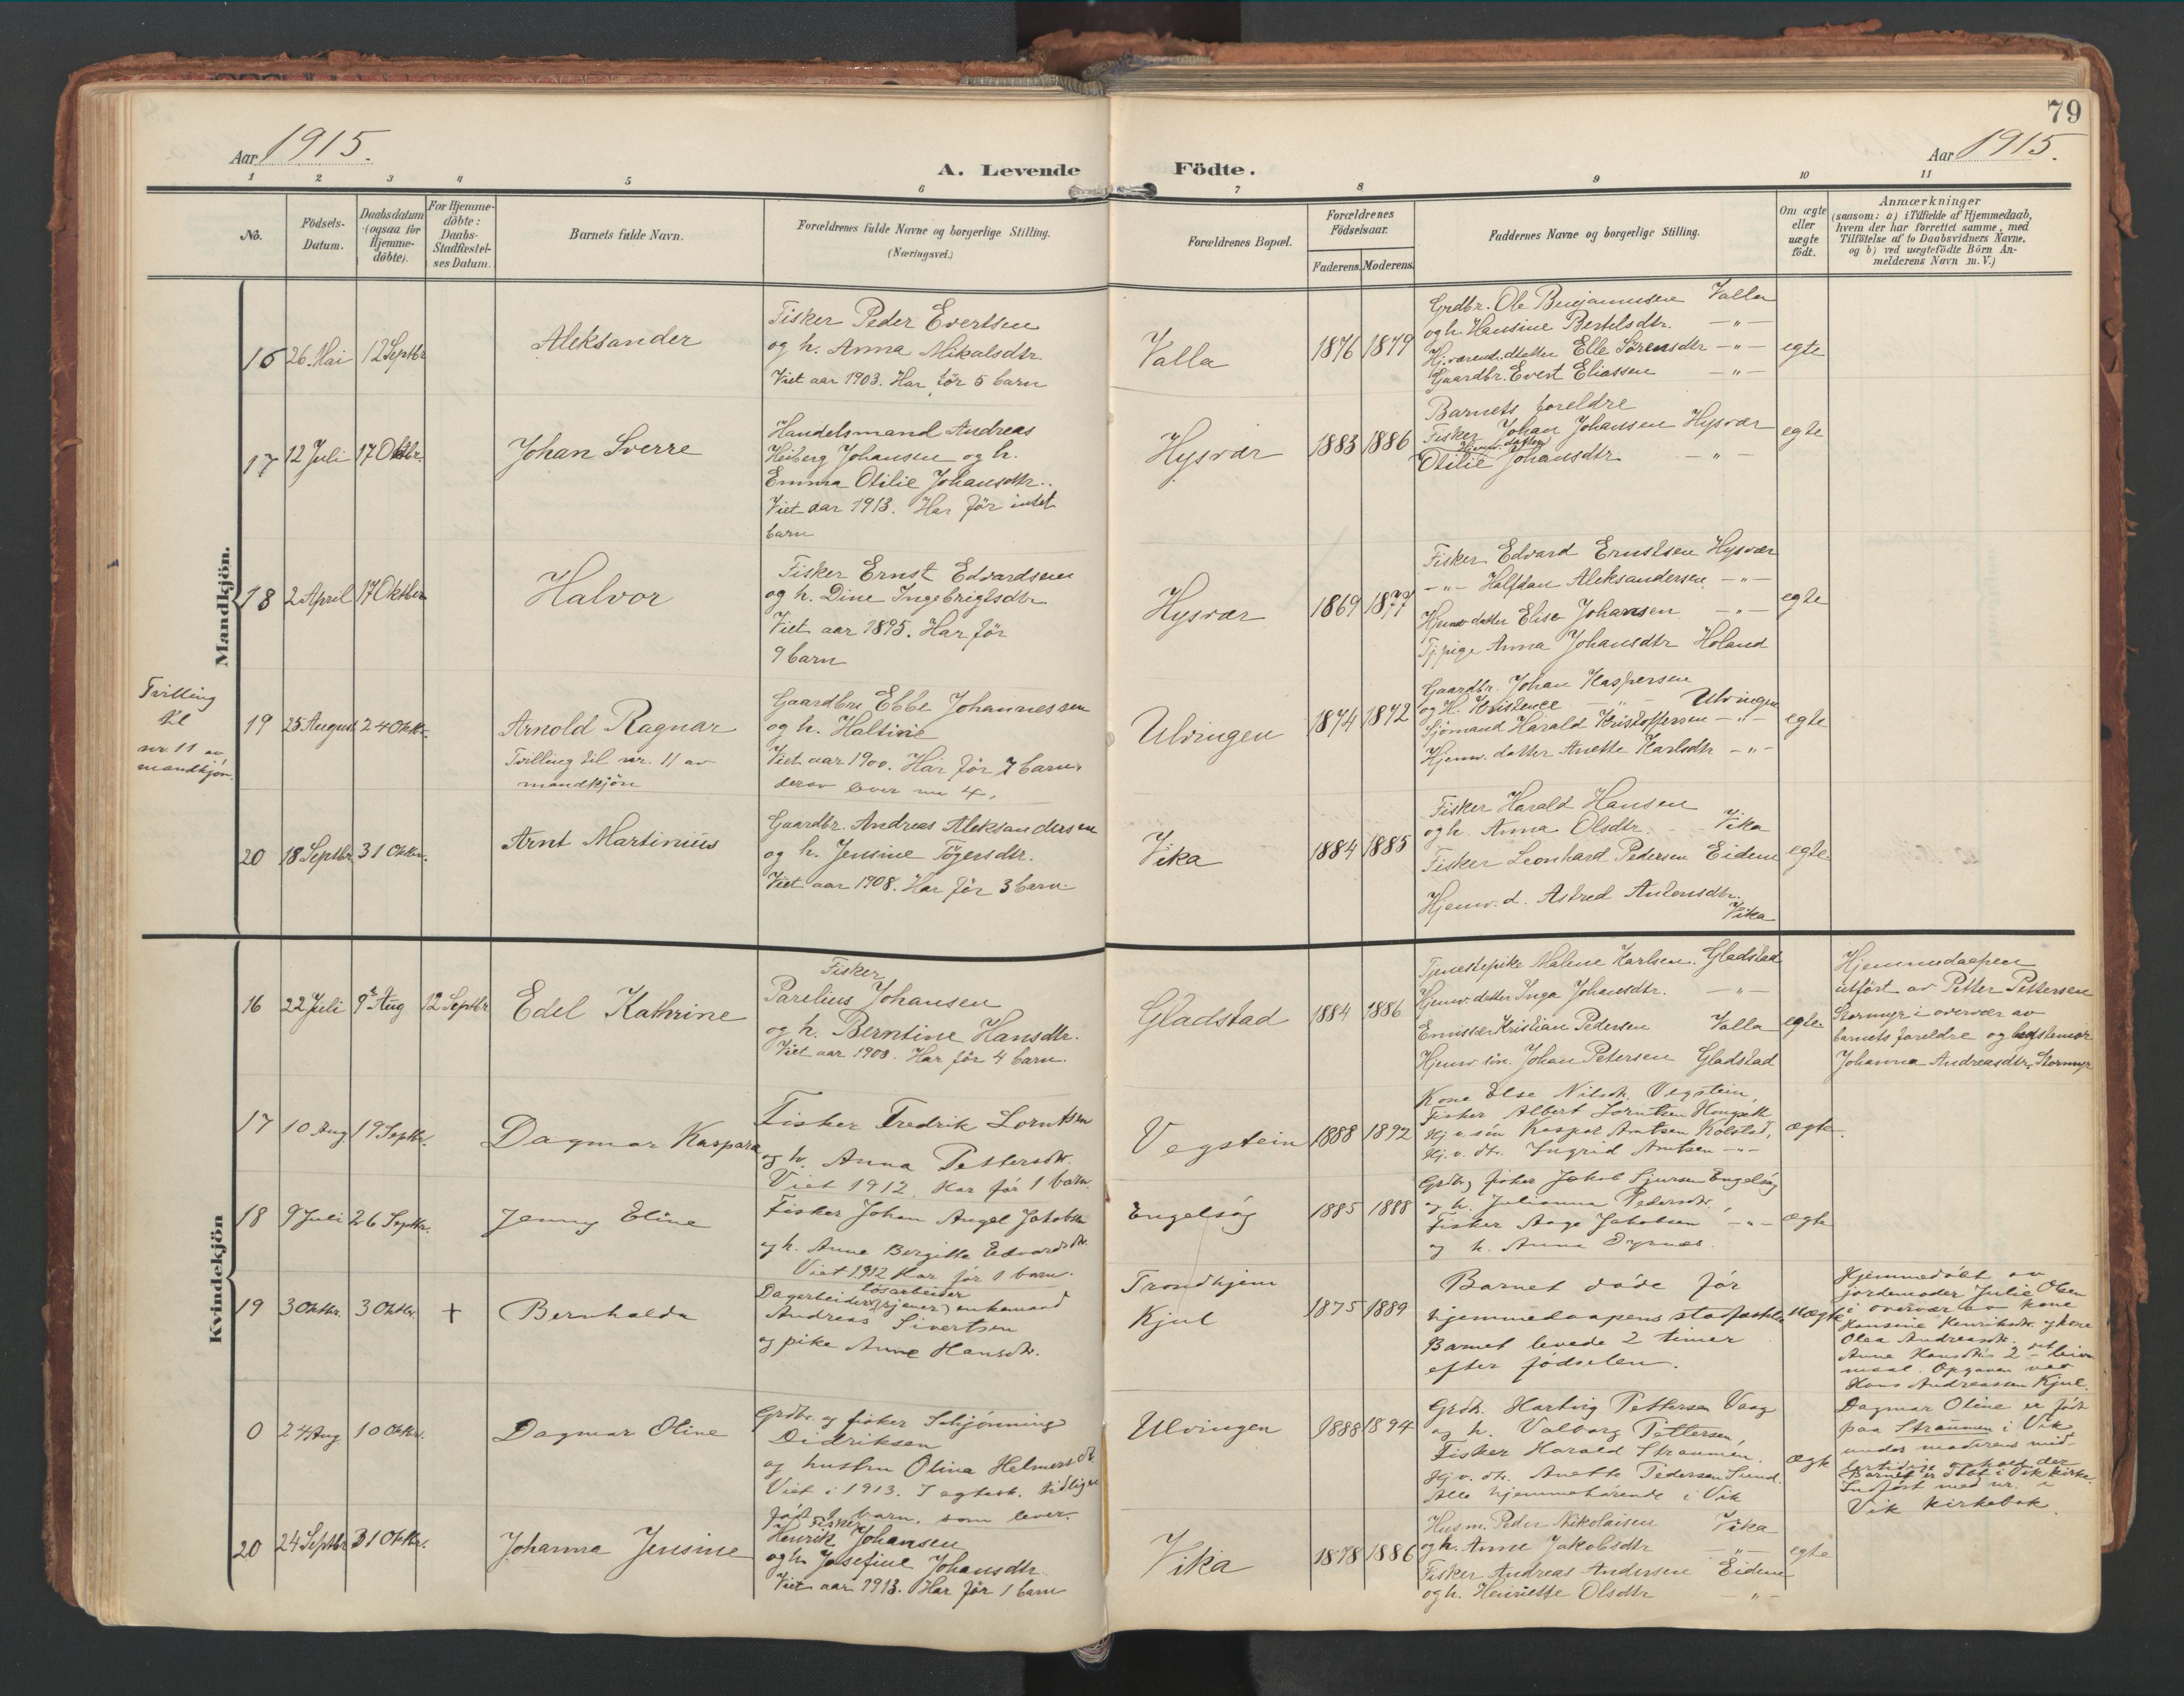 79
Aar 1915.
A. Levende Födte.
Aar 1915.
1 2 3 4 5 6 7 8 9 10 11
No.
Födsels-
Datum.
Daabsdatum
(ogsaa for
Hjemme-
döbte).
For Hjemme-
döbte:
Daabs-
Stadfæstel-
ses Datum.
Barnets fulde Navn.
Forældrenes fulde Navne og borgerlige Stilling.
(Næringsvei.)
Forældrenes Bopæl.
Forældrenes
Födselsaar.
Faderens. Moderens.
Faddernes Navne og borgerlige Stilling.
Om ægte
eller
uægte
födt.
Anmærkninger
(saasom: a) i Tilfælde af Hjemmedaab,
hvem der har forrettet samme, med
Tilföielse af to Daabsvidners Navne,
og b) ved uægtefödte Börn An-
melderens Navn m. V.)
Mandkjön.
16 26 Mai 12 Septbr
Aleksander
Fisker Peder Evertsen
og h. Anna Mikalsdtr.
Viet aar 1903. Har før 5 barn
Valla
1876 1879
Grdbr. Ole Benjaminsen Valla
og h. Hansine Bertelsdtr. — " —
Hj.værend. datter Elle Sørensdtr — " —
Gaardbr. Evert Eliassen — " —
egte
17 12 Juli 17 Oktbr.
Johan Sverre
Handelsmand Andreas
Heiberg Johansen og h.
Emma Otilie Johansdtr.
Viet aar 1913. Har før intet
barn
Hysvær
1883 1886
Barnets foreldre
Fisker Johan Johansen Hysvær
Hjemv. datter
Otilie Johansdtr — " —
egte
18 2 April 17 Oktbr
Halvor
Fisker Ernst Edvardsen
og h. Dine Ingebrigtsdtr
Viet aar 1895. Har før
9 barn
Hysvær
1869 1877
Fisker Edvard Ernstsen Hysvær
— " — Halfdan Aleksandersen — " —
Hjemv datter Elise Johansen — " —
Tj. pige Anna Johansdtr Holand
egte
Tvilling
til
nr 11 av
mandkjön.
19 25 August 24 Oktbr.
Arnold Ragnar
Tvilling til nr. 11 av
mandkjön
Gaardbr. Ebbe Johannessen
og h. Haltine
Viet aar 1900. Har før 7 barn,
derav lever nu 4.
Ulvingen
1874 1872
Gaardbr. Johan Kaspersen
og H. Kristence — " — Ulvingen
Sjömand Harald Kristoffersen — " —
Hjemv. datter Anette Karlsdtr — " —
egte
20 18 Septbr. 31 Oktbr.
Arnt Martinius
Gaardbr. Andreas Aleksandersen
og h. Jensine Tögersdtr.
Viet aar 1908. Har før 3 barn.
Vika
1884 1885
Fisker Harald Hansen
og h. Anna Olsdtr. Vika
Fisker Leonhard Pedersen Eidem
Hjemv. d. Astred Antonsdtr.
Vika
egte
Kvindekjön
16 22 Juli 9 Aug 12 Septbr
Edel Kathrine
Fisker
Parelius Johansen
og h. Berntine Hansdtr.
Viet aar 1908. Har før 4 barn.
Gladstad
1884 1886
Tjenestepike Malene Karlsen. Gladstad
Hjemv. datter Inga Johansdtr. — " —
Emissær Kristian Pedersen Valla
Hjemv. sön. Johan Petersen Gladstad
egte
Hjemmedaapen
utført av Petter Pettersen
Stormyr i overvær av
barnets foreldre og bedstemor
Johanna Andreasdtr, Stormyr
17 10 Aug 19 Septbr.
Dagmar Kaspara
Fisker Fredrik Lorntsen
og h. Anna Pettersdtr.
Viet 1912. Har før 1 barn.
Vegstein
1888 1892
Kone Else Nilsdtr. Vegstein,
Fisker Albert Lorntsen
Hj. v. sön Kaspar Arntsen Kolstad,
Hj. v. dtr. Ingrid Arntsen — " —
ægte.
18 9 Juli 26 Septbr.
Jenny Eline
Fisker Johan Angel Jakobsen
og h. Anne Birgitte Edvardsdtr.
Viet 1912 Har før 1 barn.
Engelsög
1885 1888
Grdbr, fisker Jakob Sjursen Engelsög
og h. Julianna Pedersdtr.,
Fisker Aage Jakobsen — " —
og h. Anna Dypnæs.
ægte
19 3 Oktbr. 3 Oktbr. +
Bernhalda
Lösarbeider
Dagarbeider (tjener) enkemand
Andreas Sivertsen
og pike Anne Hansdtr.
Trondhjem
Kjul
1875 1889
Barnet døde før
hjemmedaapens stadfæstelse
Barnet levede 2 timer
efter fødselen.
uægte
Hjemmedøbt av
jordemoder Julie Olsen
i overvær av kone
Hansine Henriksdtr. og kone
Olea Andreasdtr.
Anne Hansdtrs 2det leier
maal. Opgaven ved
Hans Andreassen Kjul.
0 24 Aug 10 Oktbr.
Dagmar Oline
Grdbr. og fisker Schjønning
Didriksen
og hustru Olina Helmersdtr.
Viet i 1913. I egtesk. tidligere
født 1 barn, som lever.
Ulvingen
1888 1894
Grdbr. Hartvig Pettersen Vaag
og h. Valborg Pettersen,
Fisker Harald Straumen,
Hj. v. dtr. Anette Pedersen Sund.
Alle hjemmehørende i Vik
ægte
Dagmar Oline er født
paa Straumen i Vik
under moderens mid-
lertidige ophold der
Barnet er døbt i Vik kirke.
Indført med nr. i
Vik kirkebok.
20 24 Septbr 31 Oktbr.
Johanna Jensine
Fisker
Henrik Johansen
og h. Josefine Johansdtr.
Viet aar 1913. Har før 1 barn
Vika
1878 1886
Husm. Peder Nikolaisen Vika
og h. Anne Jakobsdtr — " —
Fisker Andreas Andersen Eidem
og h. Henriette Olsdtr — " —
egte